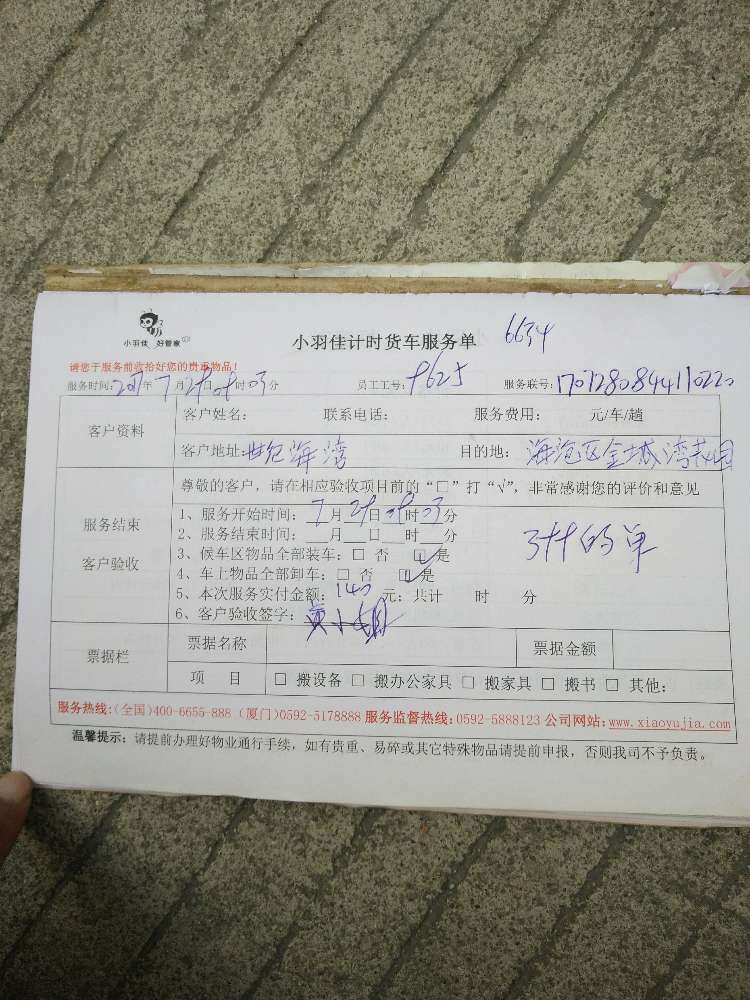 小羽佳 好管家
小羽佳计时货车服务单 6634
请您于服务前收拾好您的贵重物品！
服务时间：2017年7月29日09时03分 员工工号：9625 服务联号：1707280844110220
客户资料
客户姓名： 联系电话： 服务费用： 元/车/趟
客户地址：世纪海湾 目的地：海沧区金城湾花园
服务结束
客户验收
尊敬的客户，请在相应验收项目前的“□”打“√”，非常感谢您的评价和意见
1、服务开始时间：7月29日09时03分
2、服务结束时间： 月 日 时 分
3、候车区物品全部装车：□ 否 □ 是
4、车上物品全部卸车：□ 否 □ 是
5、本次服务实付金额：140元；共计 时 分
6、客户验收签字：黄小姐
的单
票据栏
票据名称 票据金额
项 目 □ 搬设备 □ 搬办公家具 □ 搬家具 □ 搬书 □ 其他：
服务热线：(全国)400-6655-888 (厦门)0592-5178888 服务监督热线：0592-5888123 公司网站：www.xiaoyujia.com
温馨提示：请提前办理好物业通行手续，如有贵重、易碎或其它特殊物品请提前申报，否则我司不予负责。